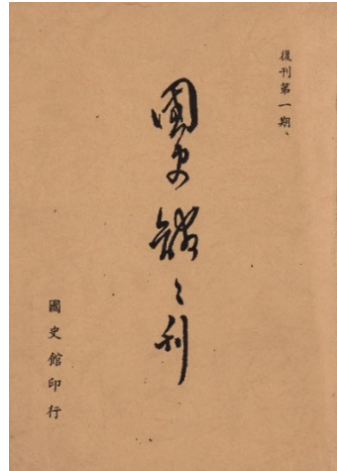 復刊第一期
國史館〻刊
國史館印行